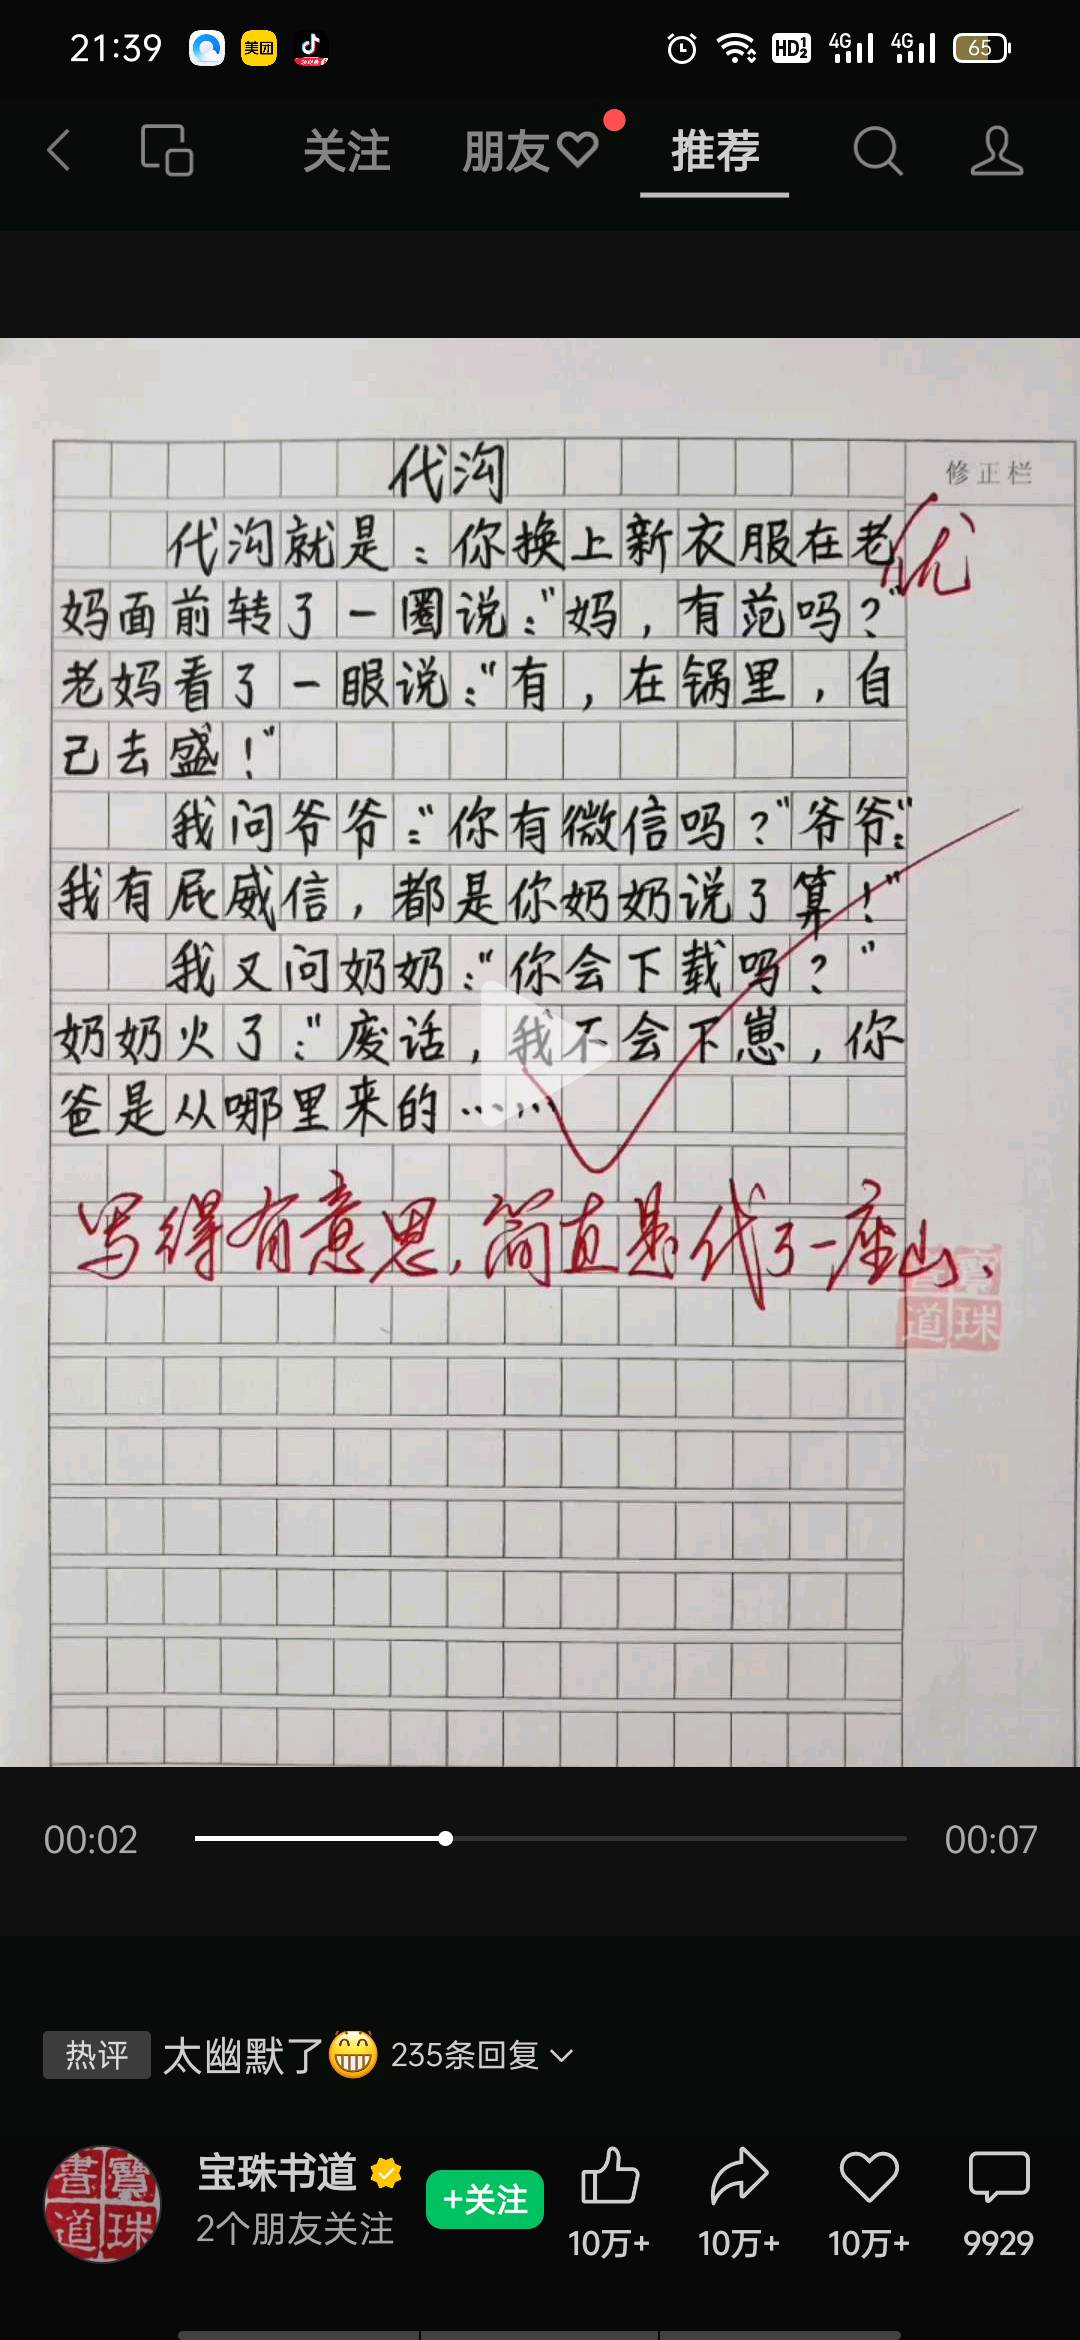 21:39
美团
HD 1 2
4G
4G
65
关注
朋友
推荐
修正栏
代沟
优
代沟就是：你换上新衣服在老
妈面前转了一圈说：“妈，有范吗？”
老妈看了一眼说：“有，在锅里，自
己去盛！”
我问爷爷：“你有微信吗？”爷爷：“
我有屁威信，都是你奶奶说了算！”
我又问奶奶：“你会下载吗？”
奶奶火了：“废话，我不会下崽，你
爸是从哪里来的……
写得有意思，简直是代了一座山、
書寶
道珠
00:02
00:07
热评 太幽默了😁 235条回复
書寶
道珠
宝珠书道
2个朋友关注
+关注
10万+
10万+
10万+
9929